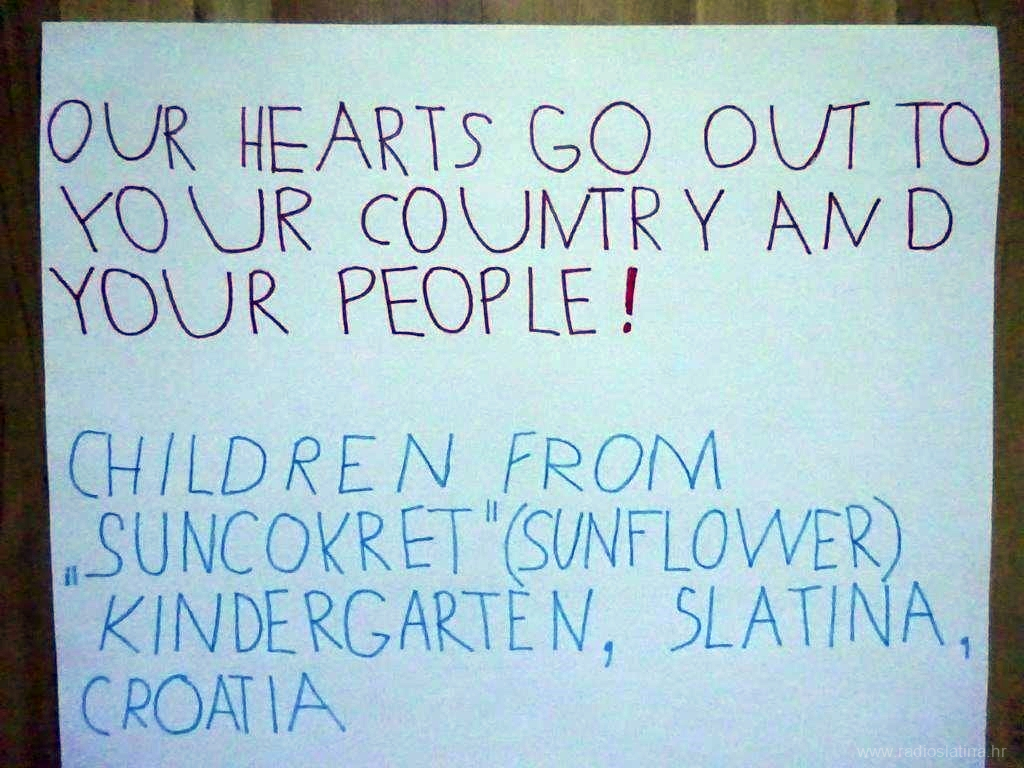 OUR HEARTS GO OUT TO
YOUR COUNTRY AND
YOUR PEOPLE!
CHILDREN FROM
„SUNCOKRET" (SUNFLOWER)
KINDERGARTEN, SLATINA,
CROATIA
www.radioslatina.hr